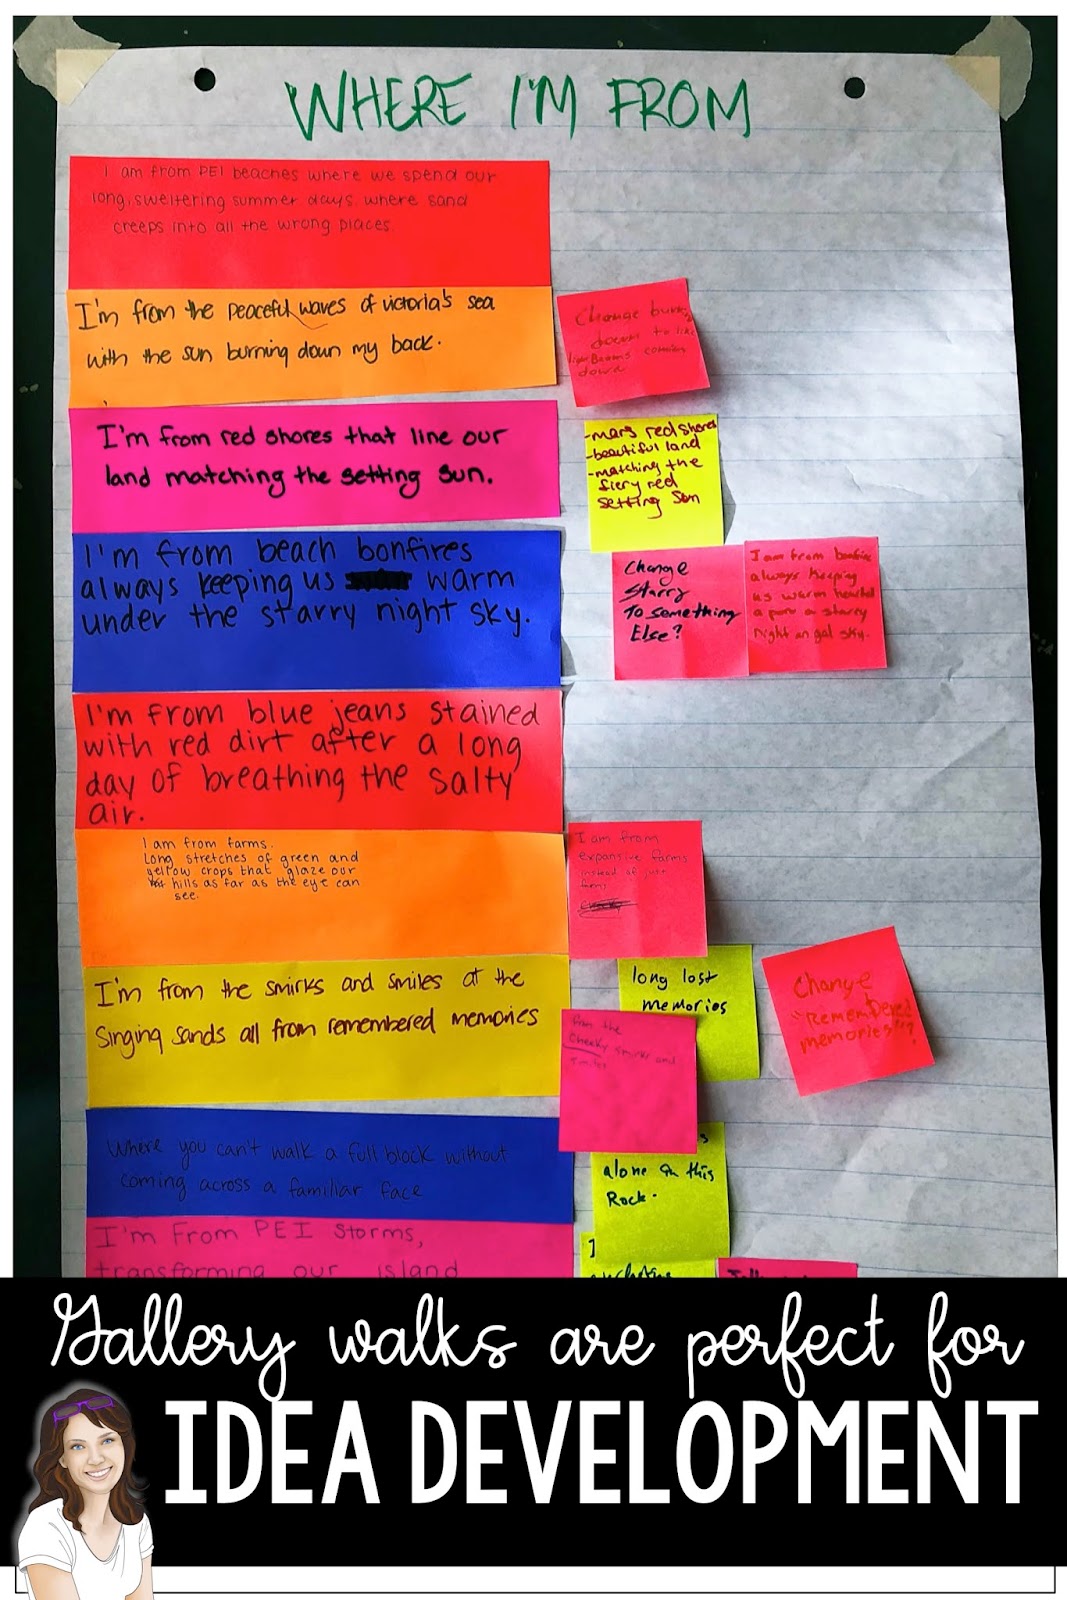 WHERE I'M FROM
I am from PEI beaches where we spend our
long, sweltering summer days. where sand
creeps into all the wrong places.
I'm from the peaceful waves of victoria's sea
with the sun burning down my back.
Change
down
down
I'm from red shores that line our
land matching the setting sun.
-mars red shores
-beautiful land
-matching the
fiery red
setting Sun
I'm from beach bonfires
always keeping us warm
under the starry night sky.
Change
starry
To something
Else?
I am from bonfires
always keeping
us warm hearted
a starry
night sky.
I'm from blue jeans stained
with red dirt after a long
day of breathing the salty
air.
I am from farms.
Long stretches of green and
yellow crops that glaze our
hills as far as the eye can
see.
I am from
expansive farms
instead of just
farms
I'm from the smirks and smiles at the
Singing sands all from remembered memories
long lost
memories
Change
"Remembered
memories"?
from the
cheeky smirks and
smiles
Where you can't walk a full block without
coming across a familiar face
alone on this
Rock.
I'm from PEI storms,
transforming our island
Gallery walks are perfect for
IDEA DEVELOPMENT